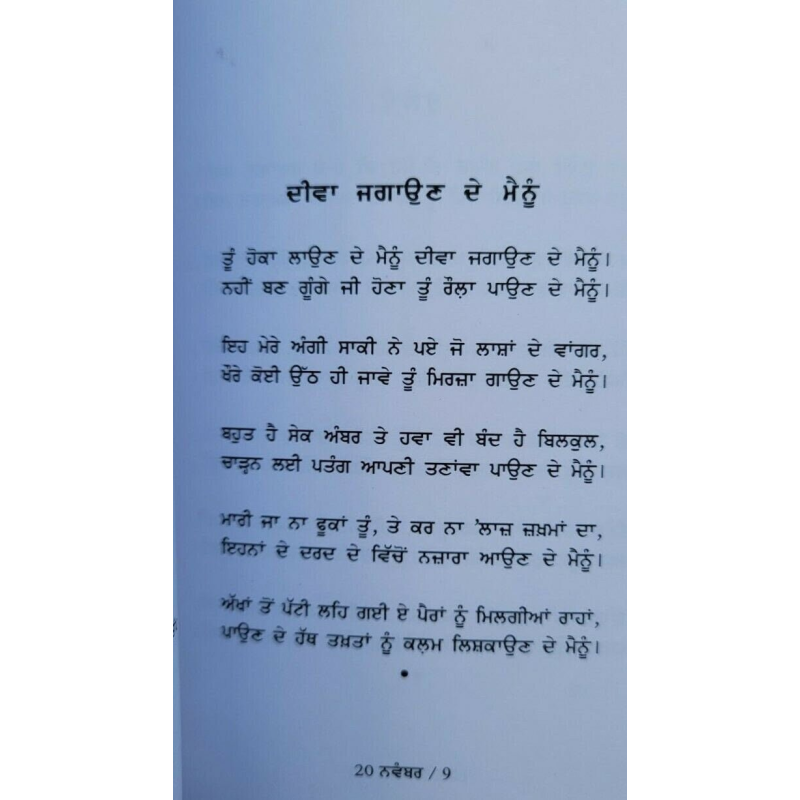 ਦੀਵਾ ਜਗਾਉਣ ਦੇ ਮੈਨੂੰ
ਤੂੰ ਹੋਕਾ ਲਾਉਣ ਦੇ ਮੈਨੂੰ ਦੀਵਾ ਜਗਾਉਣ ਦੇ ਮੈਨੂੰ।
ਨਹੀਂ ਬਣ ਗੂੰਗੇ ਜੀ ਹੋਣਾ ਤੂੰ ਰੌਲ਼ਾ ਪਾਉਣ ਦੇ ਮੈਨੂੰ।
ਇਹ ਮੇਰੇ ਅੰਗੀ ਸਾਕੀ ਨੇ ਪਏ ਜੋ ਲਾਸ਼ਾਂ ਦੇ ਵਾਂਗਰ,
ਖੌਰੇ ਕੋਈ ਉੱਠ ਹੀ ਜਾਵੇ ਤੂੰ ਮਿਰਜ਼ਾ ਗਾਉਣ ਦੇ ਮੈਨੂੰ।
ਬਹੁਤ ਹੈ ਸੇਕ ਅੰਬਰ ਤੇ ਹਵਾ ਵੀ ਬੰਦ ਹੈ ਬਿਲਕੁਲ,
ਚਾੜ੍ਹਨ ਲਈ ਪਤੰਗ ਆਪਣੀ ਤਣਾਂਵਾ ਪਾਉਣ ਦੇ ਮੈਨੂੰ।
ਮਾਰੀ ਜਾ ਨਾ ਫੂਕਾਂ ਤੂੰ, ਤੇ ਕਰ ਨਾ 'ਲਾਜ਼ ਜ਼ਖ਼ਮਾਂ ਦਾ,
ਇਹਨਾਂ ਦੇ ਦਰਦ ਦੇ ਵਿੱਚੋਂ ਨਜ਼ਾਰਾ ਆਉਣ ਦੇ ਮੈਨੂੰ।
ਅੱਖਾਂ ਤੋਂ ਪੱਟੀ ਲਹਿ ਗਈ ਏ ਪੈਰਾਂ ਨੂੰ ਮਿਲਗੀਆਂ ਰਾਹਾਂ,
ਪਾਉਣ ਦੇ ਹੱਥ ਤਖ਼ਤਾਂ ਨੂੰ ਕਲਮ ਲਿਸ਼ਕਾਉਣ ਦੇ ਮੈਨੂੰ।
20 ਨਵੰਬਰ / 9